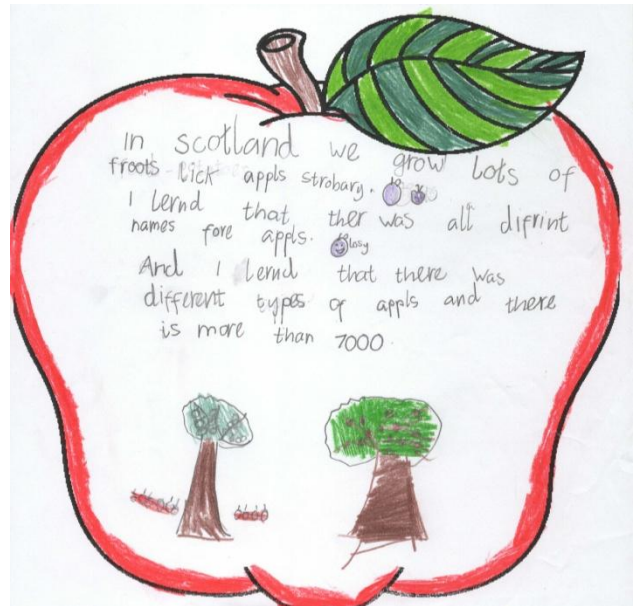 In scotland we grow lots of
froots lick appls strobary.
I lernd that ther was all difrint
names fore appls.
And I lernd that there was
different types of appls and there
is more than 7000